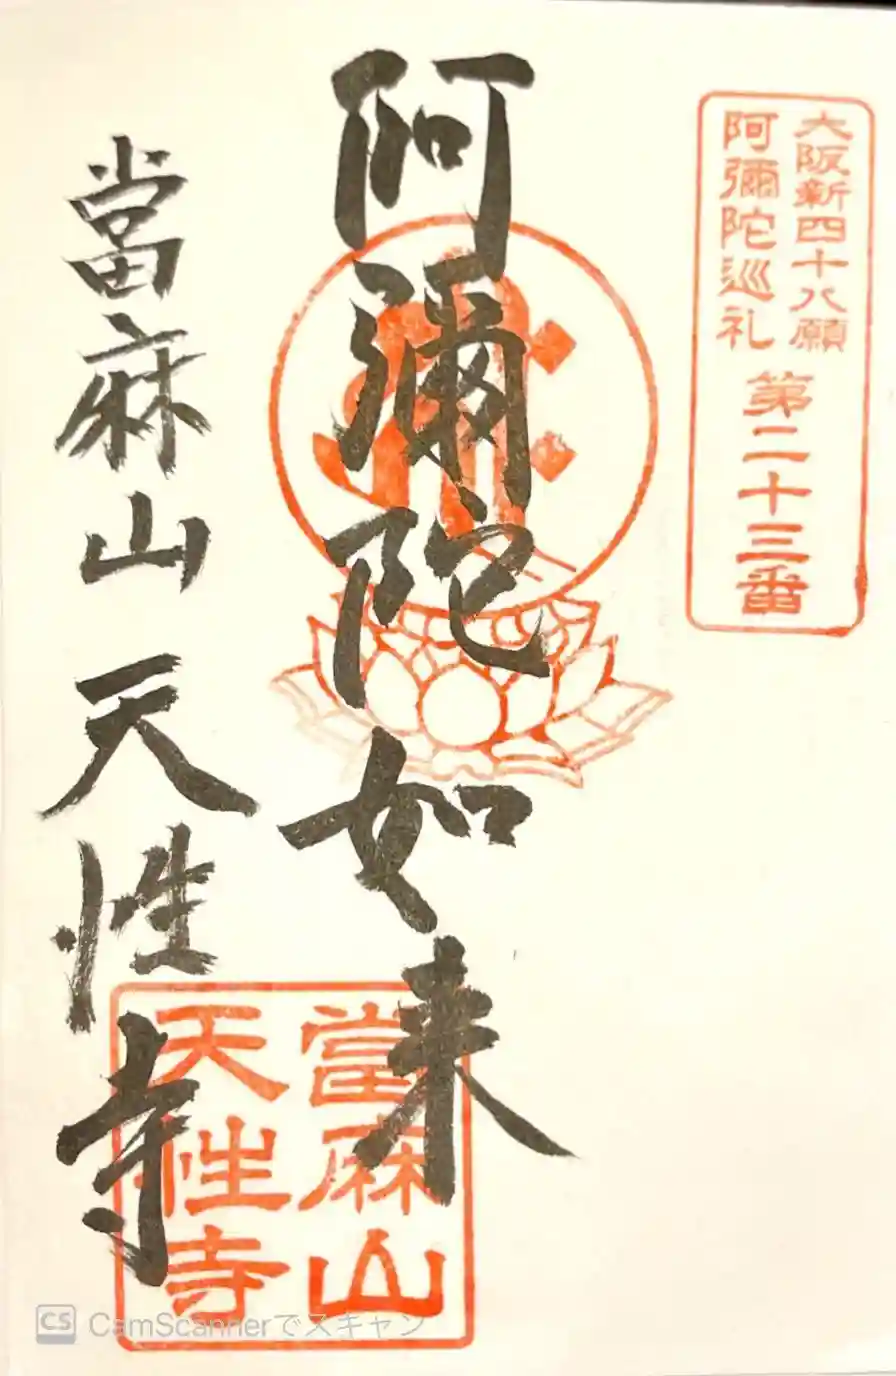 大阪新四十八願
阿彌陀巡礼
第二十三番
阿彌陀如来
當麻山天性寺
當麻山
天性寺
CS CamScannerでスキャン